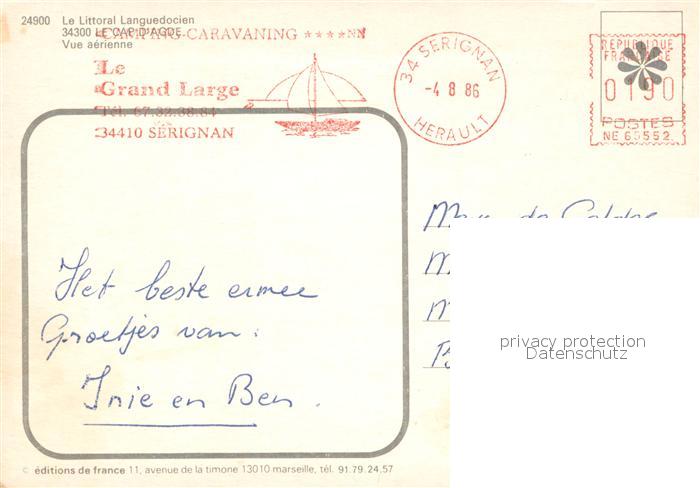 24900 Le Littoral Languedocien
34300 LE CAP D'AGDE
Vue aérienne
CAMPING-CARAVANING ★★★★NN
Le
Grand Large
Tél. 67.32.38.84
34410 SÉRIGNAN
34 SERIGNAN
-4 8 86
HERAULT
REPUBLIQUE
FRANÇAISE
0190
POSTES
NE 65552
Het beste ermee
Groetjes van:
Inie en Ben.
privacy protection
Datenschutz
© éditions de france 11, avenue de la timone 13010 marseille, tél. 91.79.24,57